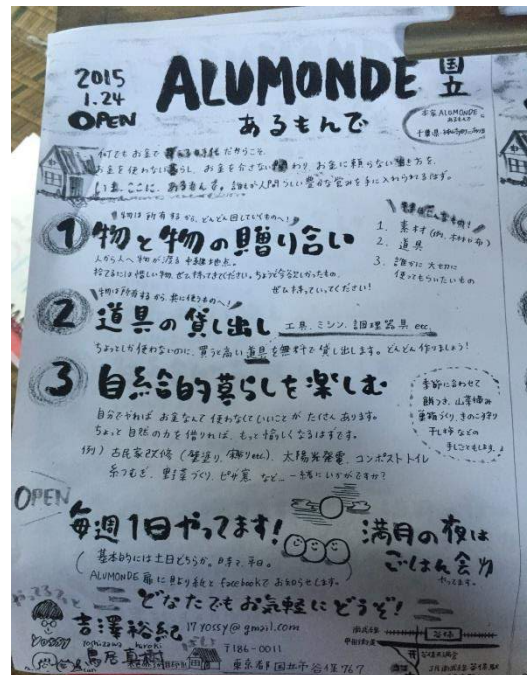 2015
1.24
OPEN
ALUMONDE 国立
あるもんで
本家ALUMONDE
あるもんで
千葉県
何でもお金で だからこそ、
お金を使わない暮らし、お金を介さない 関わり、お金に頼らない 働き方を、
ここに、あるもんで。誰もが人間らしい豊かな営みを手に入れられるはず。
物は所有するから、どんどん回していくものへ!
1 物と物の贈り合い
人から人へ物が渡る中継地点。
捨てるには惜しい物、ぜひ持ってきてください。ちょうど今欲しかったもの、
ぜひ持っていってください!
1. 素材
2. 道具
3. 誰かに大切に
使ってもらいたいもの
物は所有するから、共に使うものへ!
2 道具の貸し出し 工具、ミシン、調理器具 etc
ちょっとしか使わないのに、買うと高い道具を無料で貸し出します。どんどん作りましょう!
3 自給的暮らしを楽しむ
自分でやれば お金なんて使わなくていいことが たくさんあります。
ちょっと自然の力を借りれば、もっと愉しくなるはずです。
例) 古民家改修 (壁塗り、 etc)、太陽光発電、コンポストトイレ
糸つむぎ、野菜づくり、ピザ窯 など… 一緒にいかがですか?
季節に合わせて
餅つき、山菜摘み
巣箱づくり、きのこ狩り
干し柿などの
手しごともします。
OPEN
毎週1日やってます!
(基本的には土日どちらか。時々、平日。
ALUMONDE 扉に貼り紙とfacebookでお知らせします。)
満月の夜は
ごはん会
やってます。
どなたでもお気軽にどうぞ!
やってるひと
yossy
吉澤裕紀 17yossy@gmail.com
yoshizawa hiroki
鳥居真樹
〒186-0011
東京都国立市谷保767
南武線
谷保
甲州街道
JR南武線谷保駅